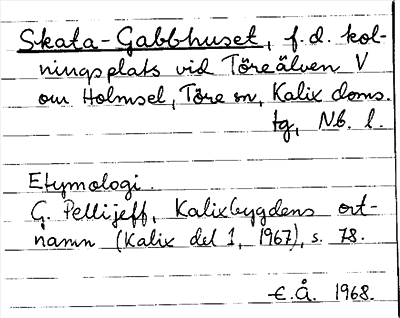 Skata-Gabbhuset, f.d. kol-
ningsplats vid Töreälven V
om Holmsel, Töre sn, Kalix doms.
tg, Nb. l.
Etymologi.
G. Pellijeff, Kalixbygdens ort-
namn (Kalix del 1, 1967), s. 78.
E.Å. 1968.